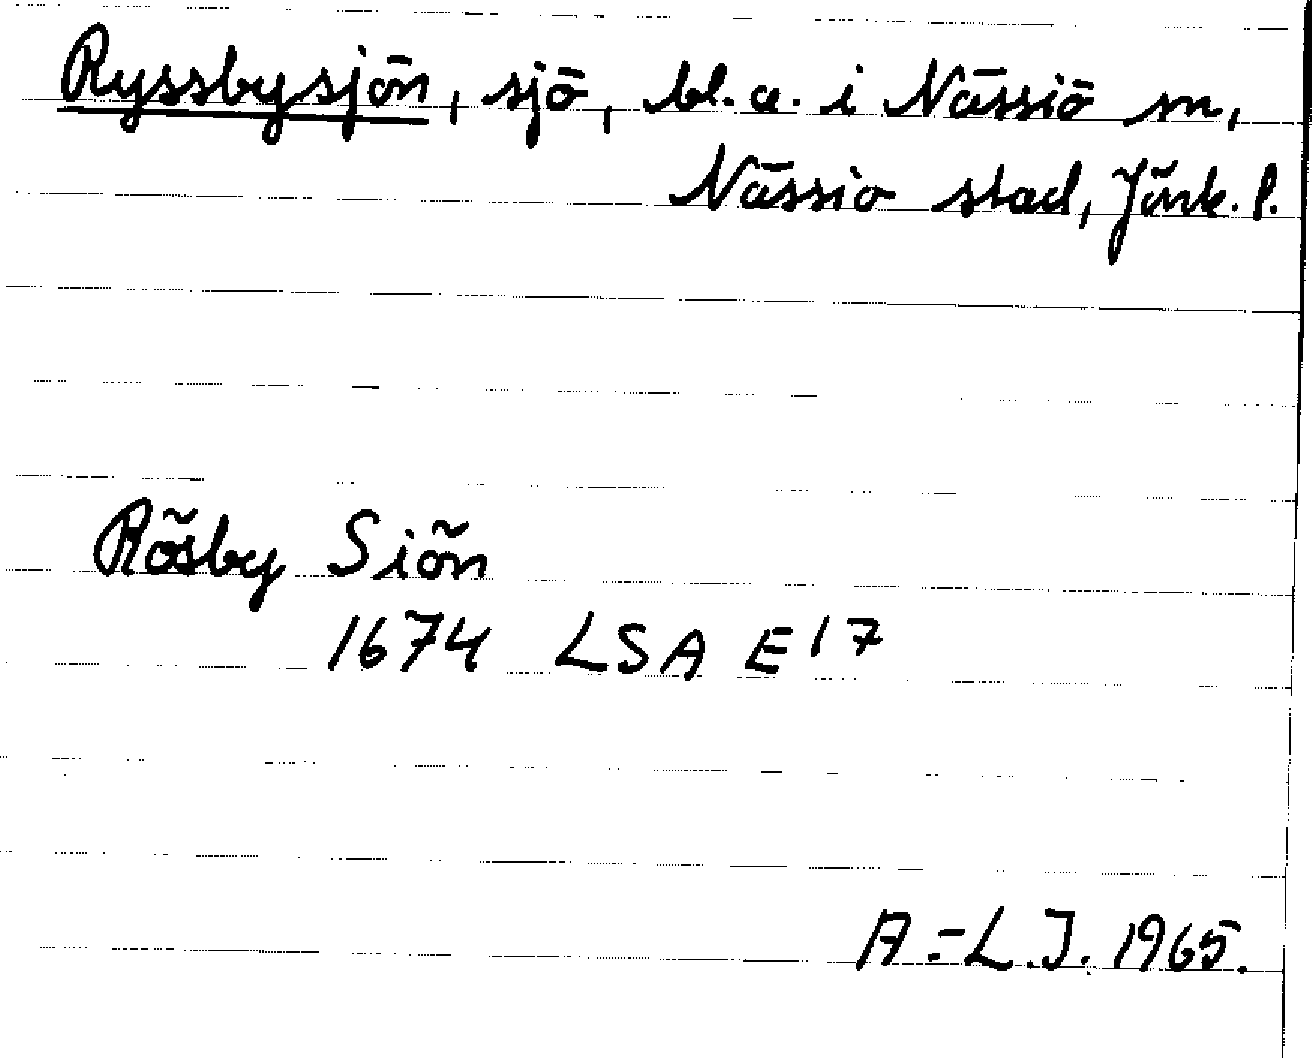 Ryssbysjön, sjö, bl.a. i Nässjö sn,
Nässjo stad, Jönk. l.
Rösby Siön
1674 LSA E 17
A.-L.J. 1965.